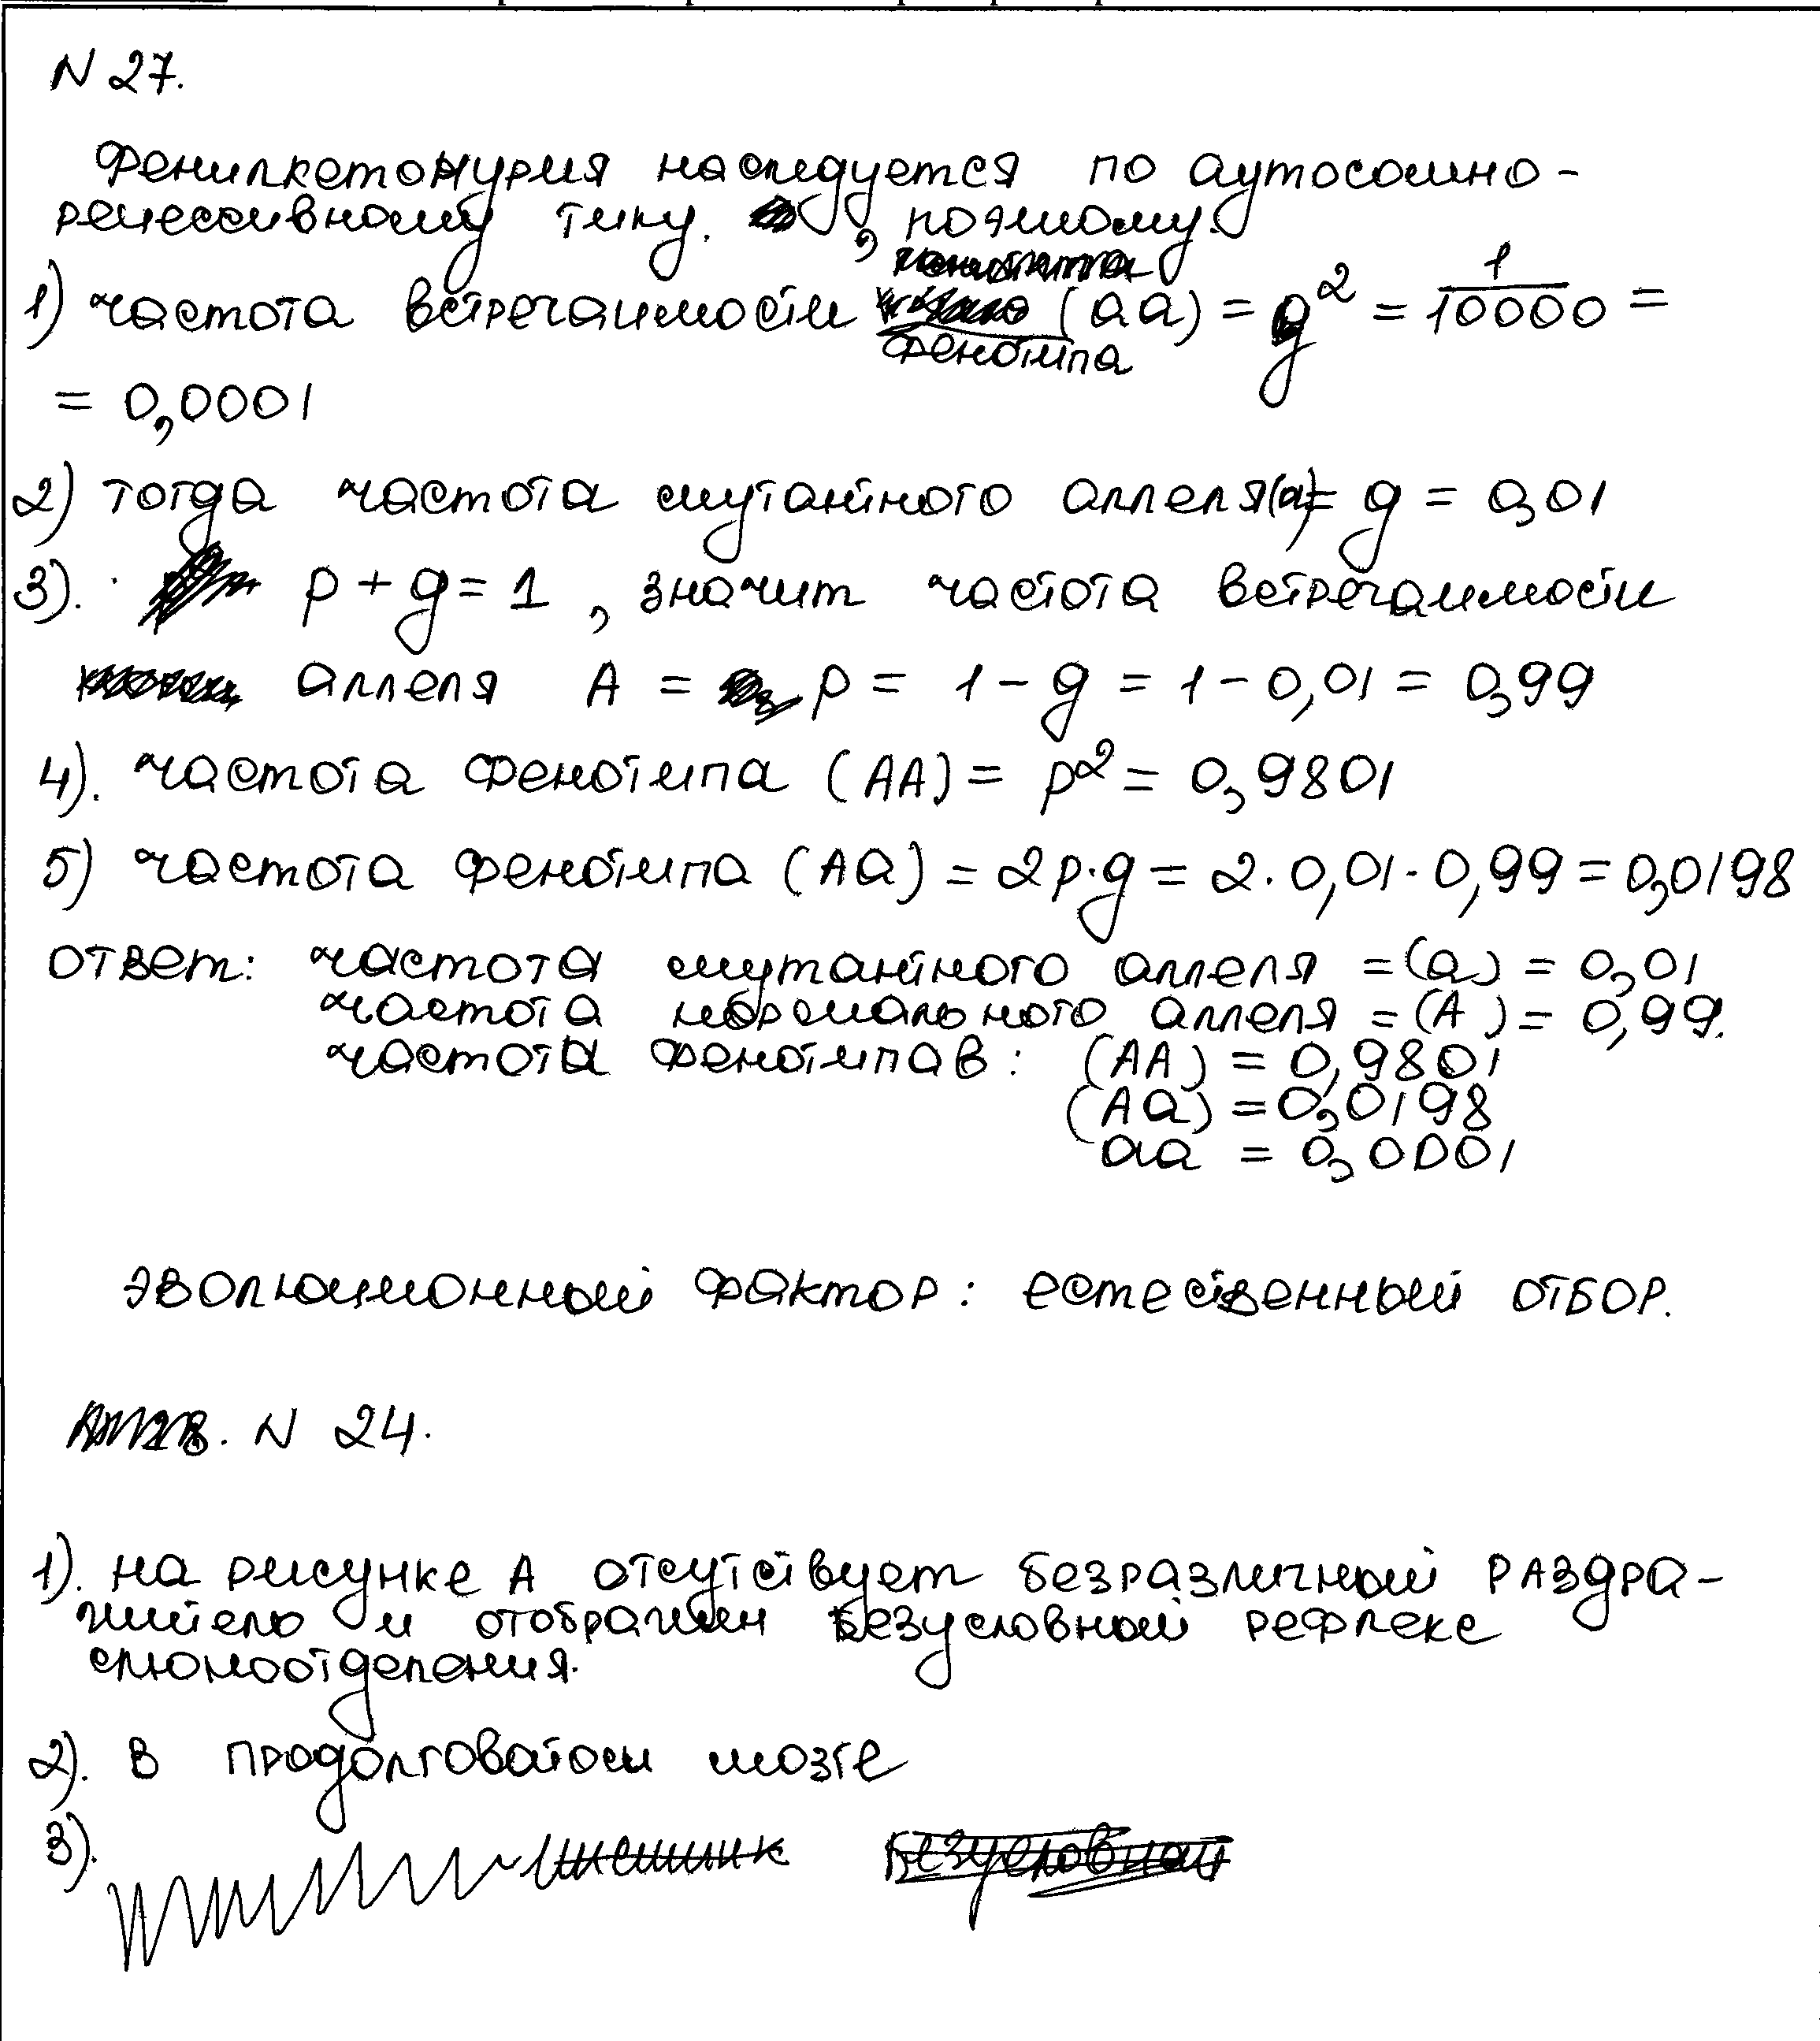 N 27.
Фенилкетонурия наследуется по аутосомно-
рецессивному типу. , поэтому:
1) частота встречаимости фенотипа (аа) = g² = 1/10000 =
= 0,0001
2) тогда частота мутантного аллеля(а)= g = 0,01
3). p + g = 1 , значит частота встречаимости
аллеля А = p = 1 - g = 1 - 0,01 = 0,99
4). частота фенотипа (АА) = p² = 0,9801
5) частота фенотипа (Аа) = 2p·g = 2·0,01·0,99 = 0,0198
ответ: частота мутантного аллеля =(а) = 0,01
частота нормального аллеля =(А) = 0,99.
частота фенотипав: (АА) = 0,9801
(Аа) = 0,0198
аа = 0,0001
эволюционный фактор: естественный отбор.
N 24.
1). на рисунке А отсутствует безразличный раздра-
житель и отображен безусловный рефлекс
слюноотделения.
2). в продолговатом мозге
3). безусловный